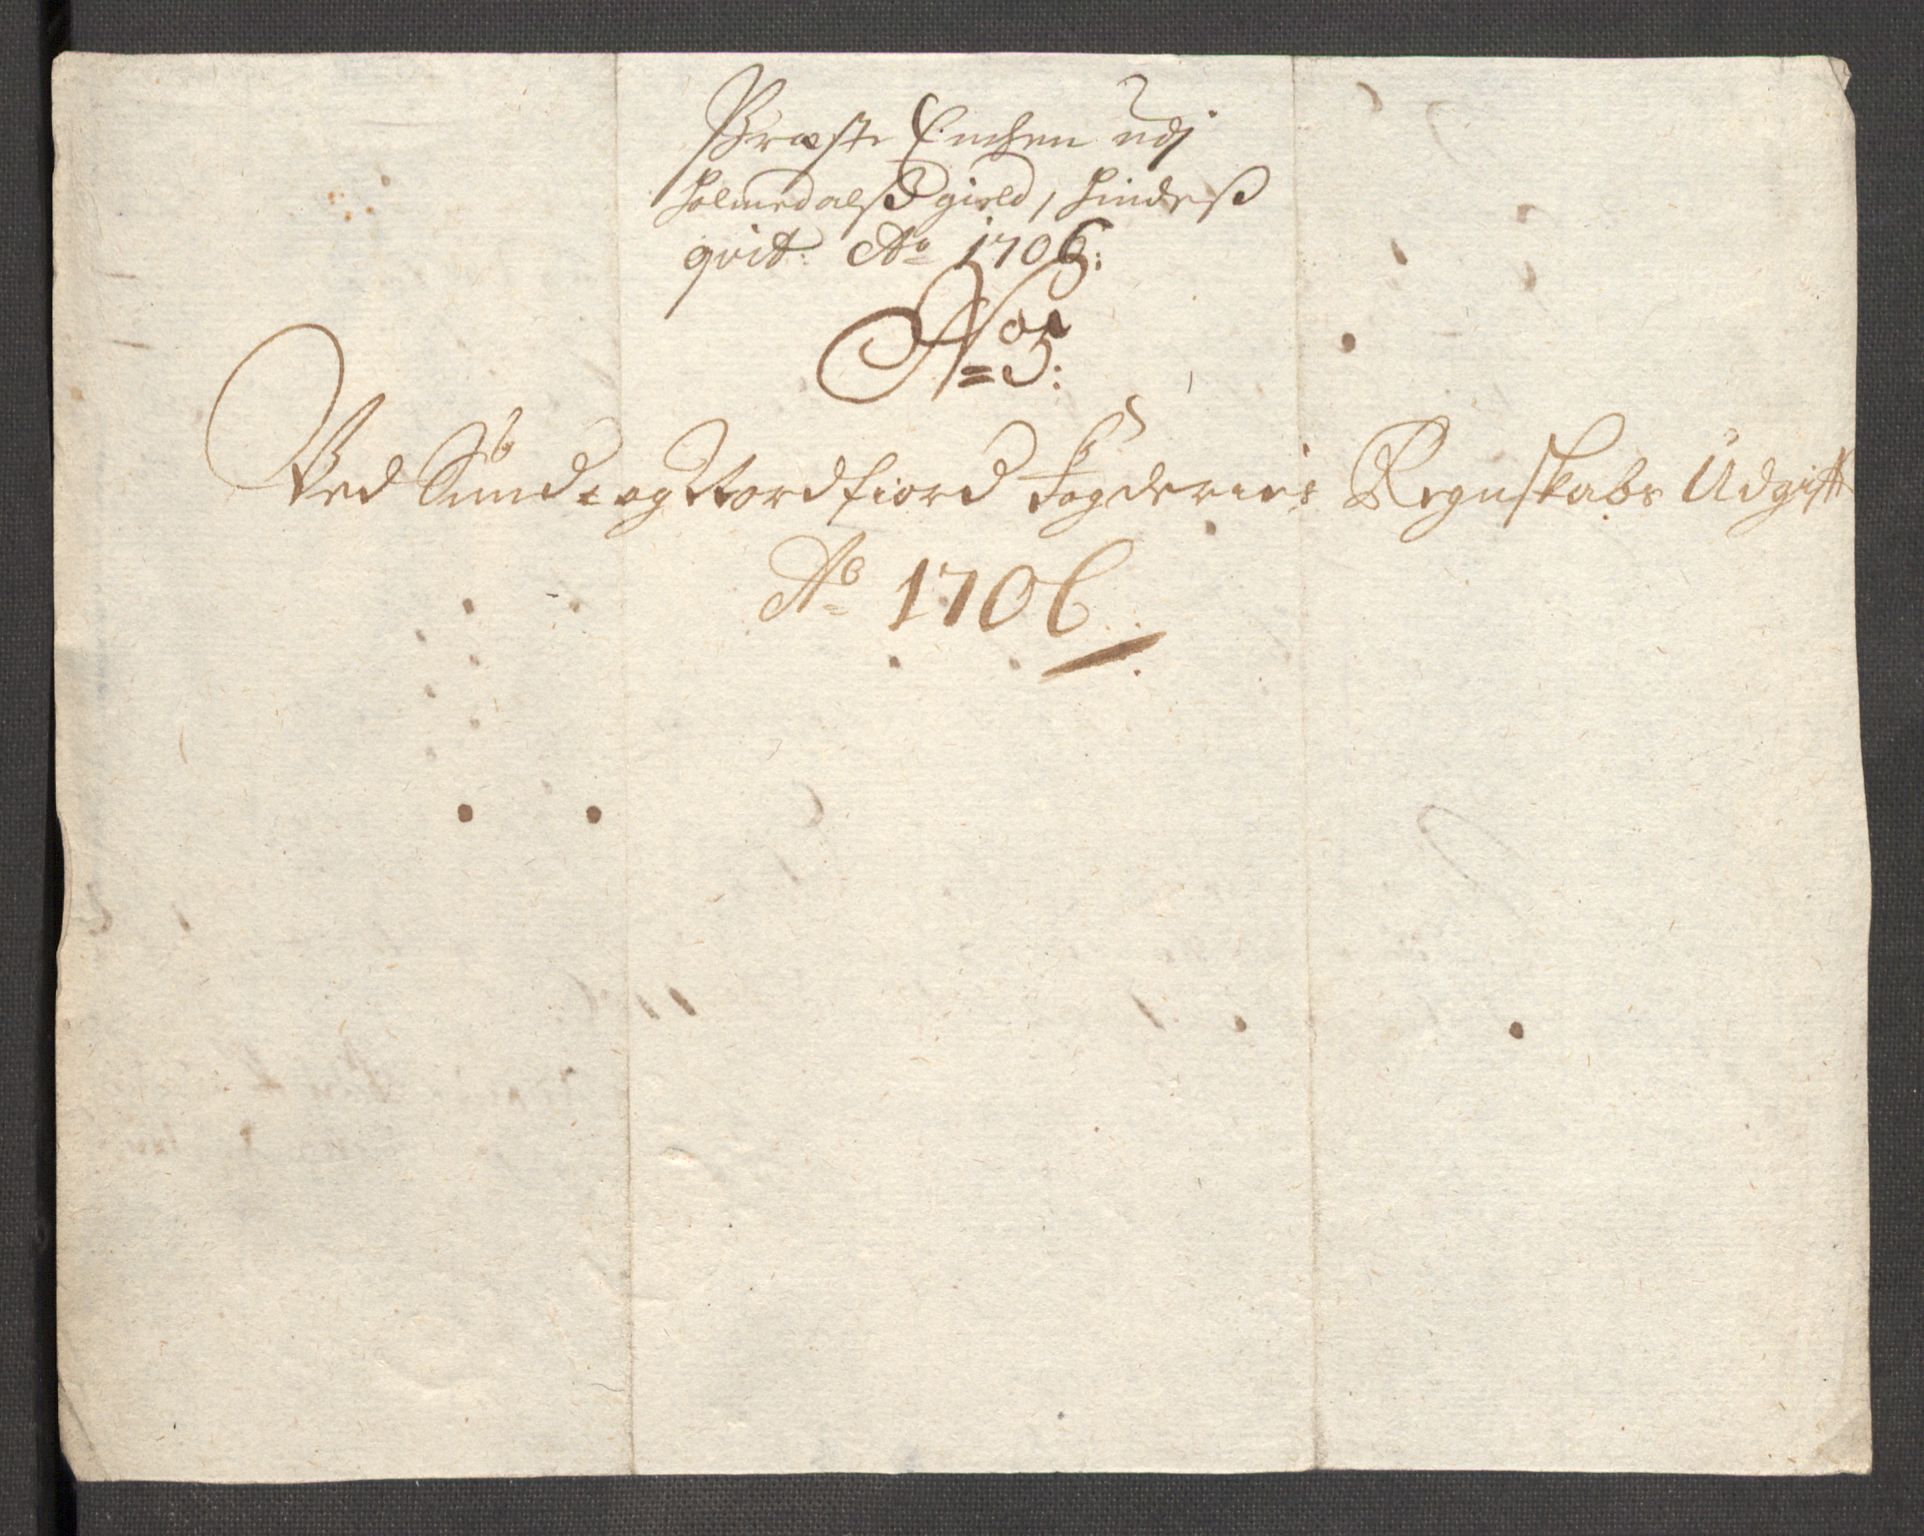 Præste Enchen udj
Holmedalß gield, hindeß
qvit: Ao 1706:
No 5:
Ved Sund- og Nordfiord Fogderies Regnskabs Udgift
Ao 1706